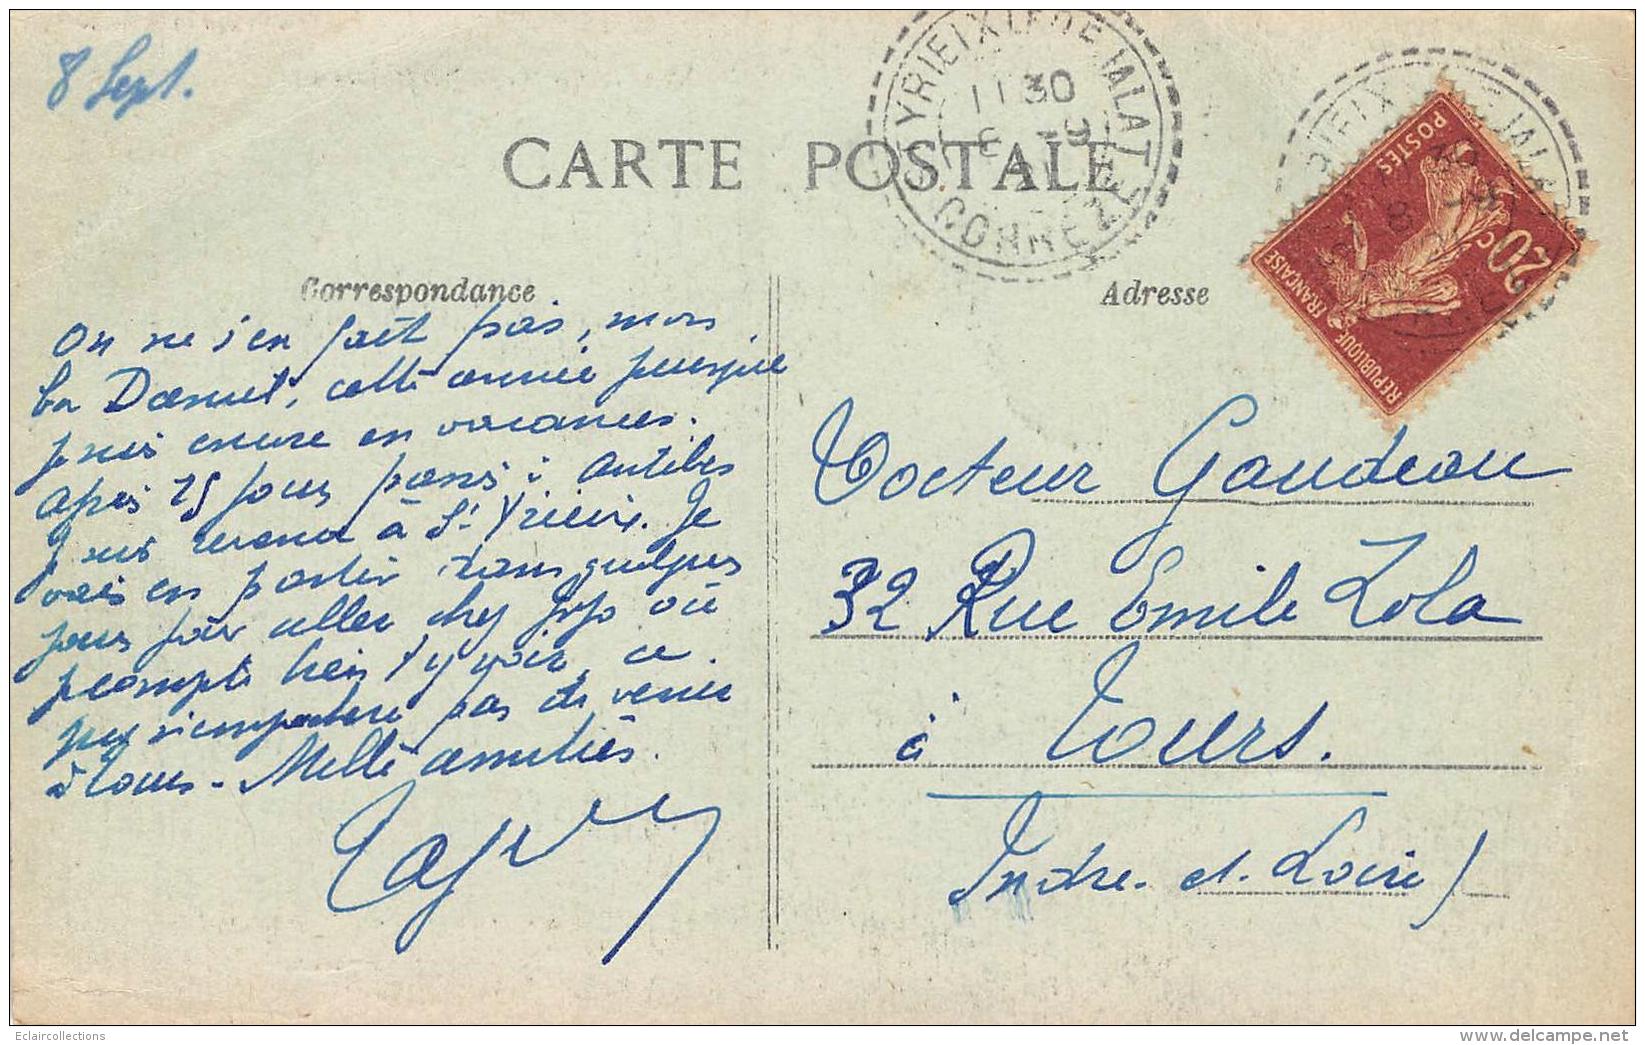 8 Sept.
CARTE POSTALE
ST YRIEIX LE DEJALAT
11 30
8 - 9
CORREZE
POSTES
20c
REPUBLIQUE FRANÇAISE
Correspondance
Adresse
On ne s'en fait pas, mon
bon Daniel, cette année puisque
je suis encore en vacances.
Après 15 jours passés à Antibes
je suis revenu à St Yrieix. Je
vais en partir dans quelques
jours pour aller chez où
je compte bien t'y voir, ce
qui n'empêchera pas de venir
à Tours - Mille amitiés.
Docteur Gaudeau
32 Rue Emile Zola
à Tours.
Indre-et-Loire)
Eclaircollections
www.delcampe.net